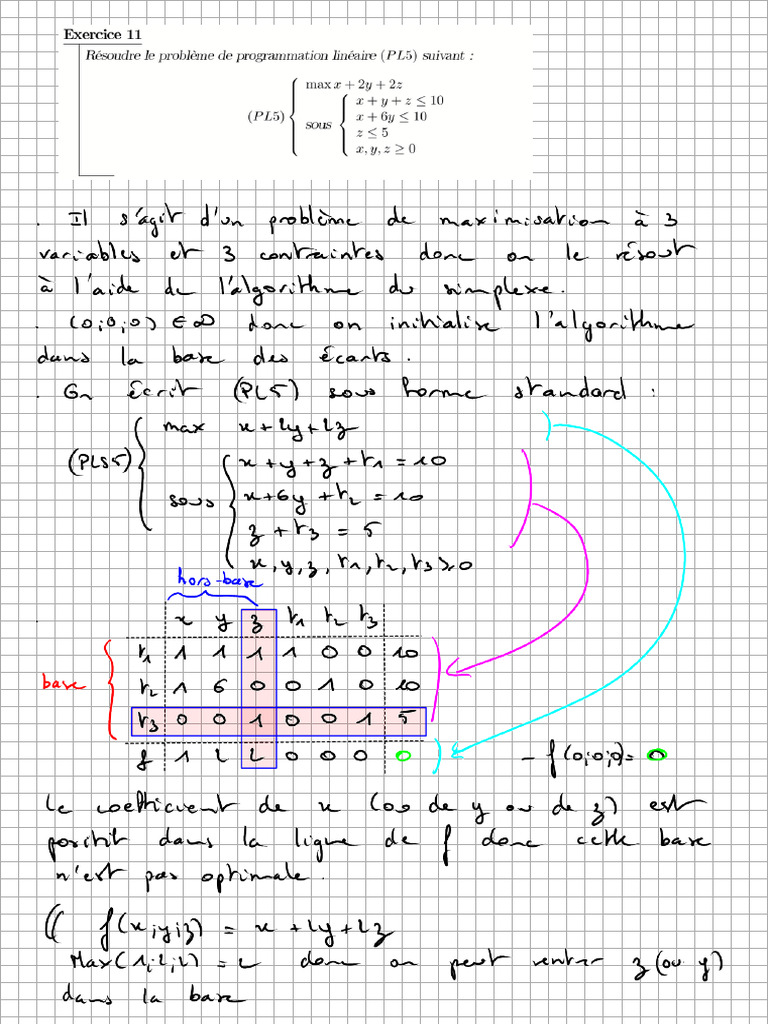 Exercice 11
Résoudre le problème de programmation linéaire (PL5) suivant :
max x + 2y + 2z
x + y + z ≤ 10
(PL5) sous x + 6y ≤ 10
z ≤ 5
x, y, z ≥ 0
. Il s'agit d'un problème de maximisation à 3
variables et 3 contraintes donc on le résout
à l'aide de l'algorithme du simplexe.
. (0;0;0) ∈ D donc on initialise l'algorithme
dans la base des écarts.
. On écrit (PL5) sous forme standard :
max x+2y+2z
(PLS5) x+y+z+t1 = 10
sous x+6y+t2 = 10
z+t3 = 5
x, y, z, t1, t2, t3 ≥ 0
hors-base
x y z t1 t2 t3
t1 1 1 1 1 0 0 10
base t2 1 6 0 0 1 0 10
t3 0 0 1 0 0 1 5
f 1 2 2 0 0 0 0 - f(0;0;0) = 0
Le coefficient de x (ou de y ou de z) est
positif dans la ligne de f donc cette base
n'est pas optimale.
(( f(x;y;z) = x + 2y + 2z
Max(1;2;2) = 2 donc on peut rentrer z (ou y)
dans la base